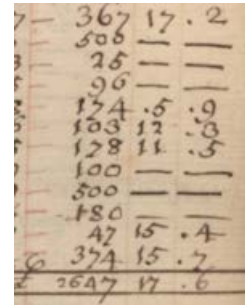 — 367 17 . 2
— 500 — —
— 25 — —
— 96 — —
— 174 . 5 . 9
— 103 12 . 3
— 178 11 . 5
— 100 — —
— 500 — —
— 180 — —
— 47 15 . 4
374 15 . 7
2647 17 . 6